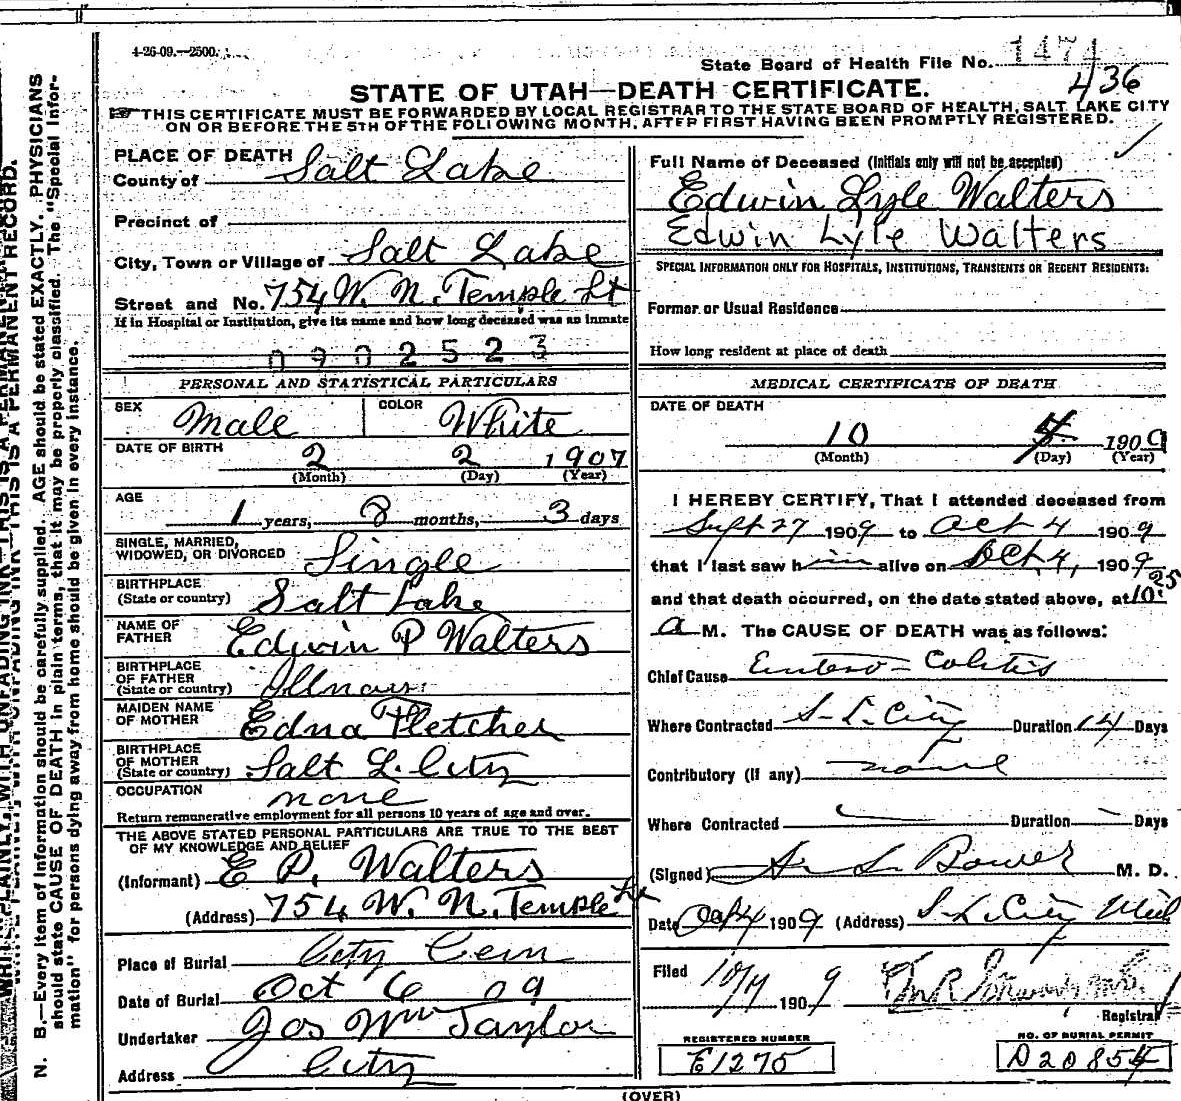 4-26-09.—2500.
State Board of Health File No. 1474
436
STATE OF UTAH—DEATH CERTIFICATE.
THIS CERTIFICATE MUST BE FORWARDED BY LOCAL REGISTRAR TO THE STATE BOARD OF HEALTH, SALT LAKE CITY
ON OR BEFORE THE 5TH OF THE FOLLOWING MONTH, AFTER FIRST HAVING BEEN PROMPTLY REGISTERED.
PLACE OF DEATH
County of Salt Lake
Precinct of
City, Town or Village of Salt Lake
Street and No. 754 W. N. Temple St
If in Hospital or Institution, give its name and how long deceased was an inmate
0902523
PERSONAL AND STATISTICAL PARTICULARS
SEX Male COLOR White
DATE OF BIRTH
2 2 1907
(Month) (Day) (Year)
AGE
1 years, 8 months, 3 days
SINGLE, MARRIED,
WIDOWED, OR DIVORCED Single
BIRTHPLACE
(State or country) Salt Lake
NAME OF
FATHER Edwin P Walters
BIRTHPLACE
OF FATHER
(State or country)
MAIDEN NAME
OF MOTHER Edna Fletcher
BIRTHPLACE
OF MOTHER
(State or country) Salt L. City
OCCUPATION
none
Return remunerative employment for all persons 10 years of age and over.
THE ABOVE STATED PERSONAL PARTICULARS ARE TRUE TO THE BEST
OF MY KNOWLEDGE AND BELIEF
(Informant) E P. Walters
(Address) 754 W. N. Temple St
Place of Burial City Cem
Date of Burial Oct 6 09
Undertaker Jos Wm Taylor
Address City
Full Name of Deceased (Initials only will not be accepted)
Edwin Lyle Walters
Edwin Lyle Walters
SPECIAL INFORMATION ONLY FOR HOSPITALS, INSTITUTIONS, TRANSIENTS OR RECENT RESIDENTS:
Former or Usual Residence
How long resident at place of death
MEDICAL CERTIFICATE OF DEATH
DATE OF DEATH
10 4 1909
(Month) (Day) (Year)
I HEREBY CERTIFY, That I attended deceased from
Sept 27 1909 to Oct 4 1909
that I last saw him alive on Oct 4, 1909
and that death occurred, on the date stated above, at 10:25
a M. The CAUSE OF DEATH was as follows:
Chief Cause Entero-Colitis
Where Contracted S. L. City Duration 14 Days
Contributory (if any) none
Where Contracted Duration Days
(Signed) L. Bower M. D.
Date Oct 4 1909 (Address) S. L. City Utah
Filed 10/4 1909
Registrar
REGISTERED NUMBER
E1275
NO. OF BURIAL PERMIT
D20854
(OVER)
WRITE PLAINLY, WITH UNFADING INK—THIS IS A PERMANENT RECORD.
N. B.—Every item of information should be carefully supplied. AGE should be stated EXACTLY. PHYSICIANS
should state CAUSE OF DEATH in plain terms, that it may be properly classified. The "Special Infor-
mation" for persons dying away from home should be given in every instance.